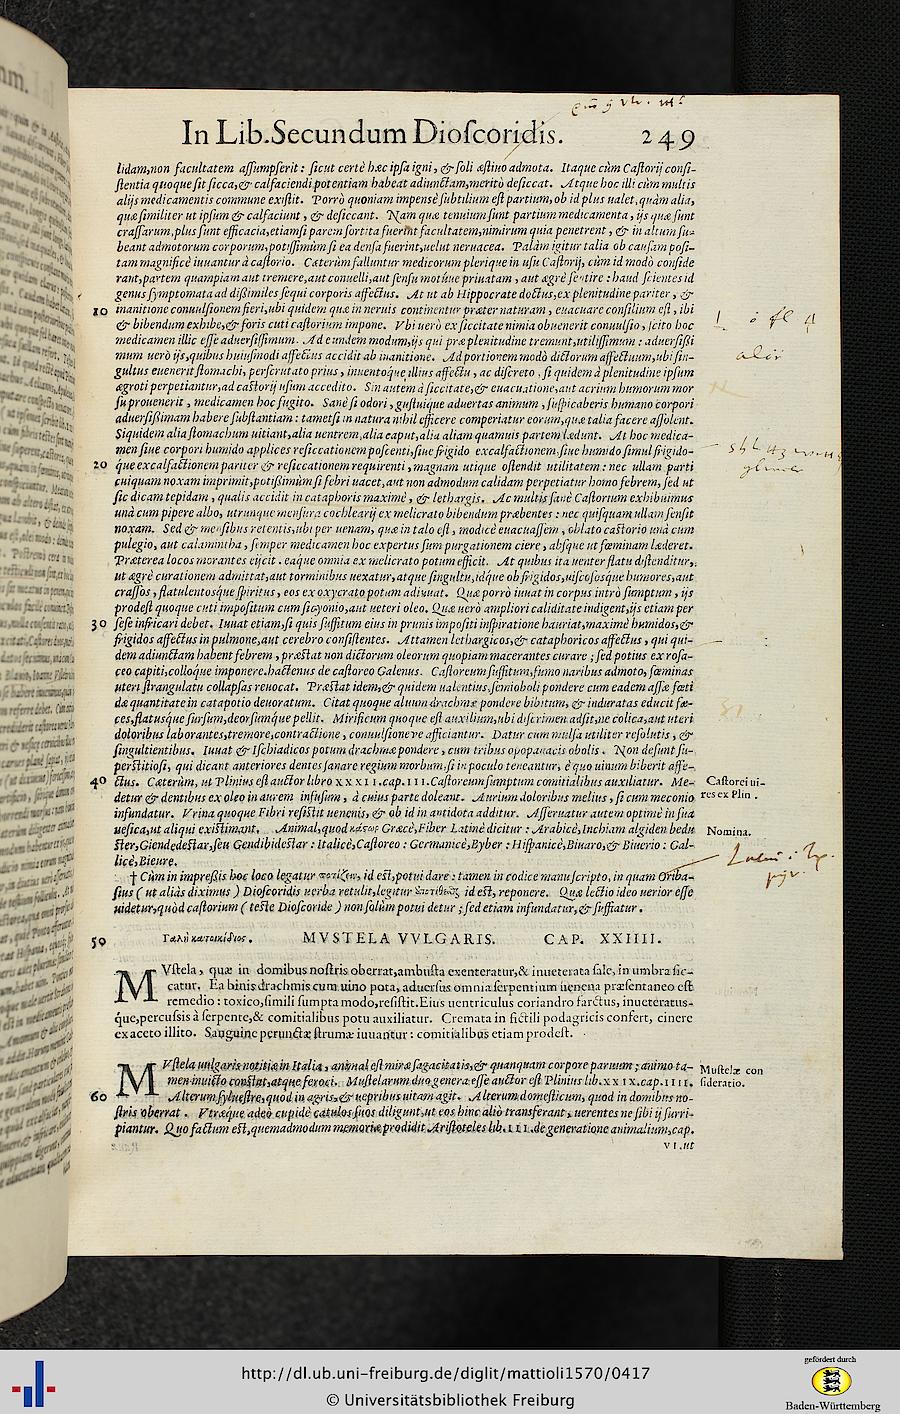 In Lib.Secundum Dioſcoridis. 249
lidam,non facultatem aſſumpſerit : ſicut certè hæc ipſa igni, & ſoli æſtiuo admota. Itaque cùm Caſtorij conſi-
ſtentia quoque ſit ſicca,& calfaciendi potentiam habeat adiunctam,meritò deſiccat. Atque hoc illi cùm multis
alijs medicamentis commune exiſtit. Porrò quoniam impensè ſubtilium eſt partium,ob id plus ualet,quàm alia,
quæ ſimiliter ut ipſum & calfaciunt , & deſiccant. Nam quæ tenuium ſunt partium medicamenta , ijs quæ ſunt
craſſarum,plus ſunt efficacia,etiamſi parem ſortita fuerint facultatem,nimirum quia penetrent , & in altum ſu-
beant admotorum corporum,potiſſimùm ſi ea denſa fuerint,uelut neruacea. Palàm igitur talia ob cauſam poſi-
tam magnificè iuuantur à caſtorio. Cæterùm falluntur medicorum plerique in uſu Caſtorij, cùm id modò conſide
rant,partem quampiam aut tremere,aut conuelli,aut ſenſu motúue priuatam , aut ægrè ſentire : haud ſcientes id
genus ſymptomata ad diſſimiles ſequi corporis affectus. At ut ab Hippocrate doctus,ex plenitudine pariter , &
10 inanitione conuulſionem fieri,ubi quidem quæ in neruis continentur præter naturam , euacuare conſilium eſt , ibi
& bibendum exhibe,& foris cuti caſtorium impone. Vbi uerò ex ſiccitate nimia obuenerit conuulſio , ſcito hoc
medicamen illic eſſe aduerſiſſimum. Ad eundem modum,ijs qui præ plenitudine tremunt,utiliſſimum : aduerſiſſi
mum uerò ijs,quibus huiuſmodi affectus accidit ab inanitione. Ad portionem modò dictorum affectuum,ubi ſin-
gultus euenerit ſtomachi, perſcrutato prius , inuentoque illius affectu , ac diſcreto , ſi quidem à plenitudine ipſum
ægroti perpetiantur,ad caſtorij uſum accedito. Sin autem à ſiccitate,& euacuatione,aut acrium humorum mor
ſu prouenerit , medicamen hoc fugito. Sanè ſi odori , guſtuique aduertas animum , ſuſpicaberis humano corpori
aduerſiſſimam habere ſubſtantiam : tametſi in natura nihil efficere comperiatur eorum,quæ talia facere aſſolent.
Siquidem alia ſtomachum uitiant,alia uentrem,alia caput,alia aliam quamuis partem lædunt. At hoc medica-
men ſiue corpori humido applices reſiccationem poſcenti,ſiue frigido excalfactionem,ſiue humido ſimul frigido-
20 que excalfactionem pariter & reſiccationem requirenti , magnam utique oſtendit utilitatem : nec ullam parti
cuiquam noxam imprimit,potiſſimùm ſi febri uacet,aut non admodum calidam perpetiatur homo febrem, ſed ut
ſic dicam tepidam , qualis accidit in cataphoris maximè , & lethargis. Ac multis ſanè Caſtorium exhibuimus
unà cum pipere albo, utrunque menſura cochlearij ex melicrato bibendum præbentes : nec quiſquam ullam ſenſit
noxam. Sed & menſibus retentis,ubi per uenam, quæ in talo eſt , modicè euacuaſſem , oblato caſtorio unà cum
pulegio, aut calamintha , ſemper medicamen hoc expertus ſum purgationem ciere , abſque ut fœminam læderet.
Præterea locos morantes eijcit . eaque omnia ex melicrato potum efficit. At quibus ita uenter flatu diſtenditur,
ut ægrè curationem admittat,aut torminibus uexatur,atque ſingultu,idque ob frigidos,uiſcoſosque humores,aut
craſſos , flatulentosque ſpiritus , eos ex oxycrato potum adiuuat. Quæ porrò iuuat in corpus intrò ſumptum , ijs
prodeſt quoque cuti impoſitum cum ſicyonio,aut ueteri oleo. Quæ uerò ampliori caliditate indigent,ijs etiam per
30 ſeſe infricari debet. Iuuat etiam,ſi quis ſuffitum eius in prunis impoſiti inſpiratione hauriat,maximè humidos,&
frigidos affectus in pulmone,aut cerebro conſiſtentes. Attamen lethargicos,& cataphoricos affectus , qui qui-
dem adiunctam habent febrem , præſtat non dictorum oleorum quopiam macerantes curare ; ſed potius ex roſa-
ceo capiti,colloque imponere.hactenus de caſtoreo Galenus. Caſtoreum ſuffitum,fumo naribus admoto, fœminas
uteri ſtrangulatu collapſas reuocat. Præſtat idem,& quidem ualentius,ſemioboli pondere cum eadem aſſæ fœti
dæ quantitate in catapotio deuoratum. Citat quoque aluum drachmæ pondere bibitum, & induratas educit fæ-
ces,flatusque ſurſum,deorſumque pellit. Mirificum quoque eſt auxilium,ubi diſcrimen adſit,ne colica,aut uteri
doloribus laborantes,tremore,contractione , conuulſioneve afficiantur. Datur cum mulſa utiliter reſolutis , &
ſingultientibus. Iuuat & Iſchiadicos potum drachmæ pondere , cum tribus opopanacis obolis . Non deſunt ſu-
perſtitioſi, qui dicant anteriores dentes ſanare regium morbum,ſi in poculo teneantur, è quo uinum biberit affe-
40 ctus. Cæterùm, ut Plinius eſt auctor libro XXXII.cap.III.Caſtoreum ſumptum comitialibus auxiliatur. Me-
detur & dentibus ex oleo in aurem infuſum , à cuius parte doleant. Aurium doloribus melius , ſi cum meconio
infundatur. Vrina quoque Fibri reſiſtit uenenis, & ob id in antidota additur. Aſſeruatur autem optimè in ſua
ueſica,ut aliqui exiſtimant. Animal,quod κάστωρ Græcè,Fiber Latinè dicitur : Arabicè,Inchiam algiden bedu
ſter,Giendedeſtar,ſeu Gendibideſtar : Italicè,Caſtoreo : Germanicè,Byber : Hiſpanicè,Biuaro,& Biuerio : Gal-
licè,Bieure.
† Cùm in impreſſis hoc loco legatur ποτίζειν, id eſt,potui dare : tamen in codice manuſcripto, in quam Oriba-
ſius ( ut aliàs diximus ) Dioſcoridis uerba retulit,legitur id eſt, reponere. Quæ lectio ideo uerior eſſe
uidetur,quòd caſtorium ( teſte Dioſcoride ) non ſolùm potui detur ; ſed etiam infundatur,& ſuffiatur .
Caſtorei ui-
res ex Plin .
Nomina.
50 Γαλῆ κατοικίδιος. MVSTELA VVLGARIS. CAP. XXIIII.
MVſtela , quæ in domibus noſtris oberrat,ambuſta exenteratur,& inueterata ſale, in umbra ſic-
catur. Ea binis drachmis cum uino pota, aduerſus omnia ſerpentium uenena præſentaneo eſt
remedio : toxico,ſimili ſumpta modo,reſiſtit.Eius uentriculus coriandro farctus, inueteratus-
que,percuſsis à ſerpente,& comitialibus potu auxiliatur. Cremata in fictili podagricis confert, cinere
ex aceto illito. Sanguine perunctæ ſtrumæ iuuantur : comitialibus etiam prodeſt.
MVſtela uulgaris notitiæ in Italia , animal eſt miræ ſagacitatis,& quanquam corpore paruum ; animo ta-
men inuicto conſtat,atque feroci. Muſtelarum duo genera eſſe auctor eſt Plinius lib.XXIX.cap.IIII.
60 Alterum ſylueſtre,quod in agris,& uepribus uitam agit. Alterum domeſticum, quod in domibus no-
ſtris oberrat . Vtræque adeò cupidè catulos ſuos diligunt,ut eos hinc aliò transferant , uerentes ne ſibi ij ſurri-
piantur. Quo factum eſt,quemadmodum memoriæ prodidit Ariſtoteles lib.III.de generatione animalium,cap.
VI.ut
Muſtelæ con
ſideratio.
http://dl.ub.uni-freiburg.de/diglit/mattioli1570/0417
© Universitätsbibliothek Freiburg
gefördert durch
Baden-Württemberg